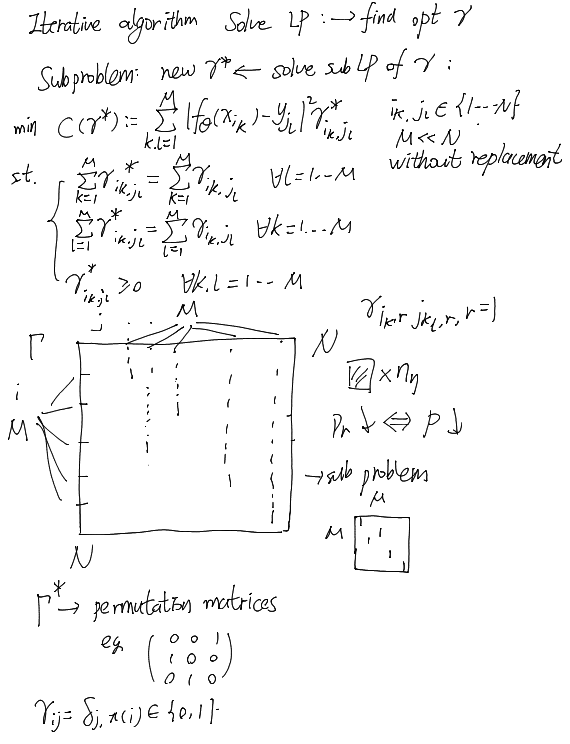 Iterative algorithm Solve LP :→ find opt γ
Subproblem: new γ* ← solve sub LP of γ :
min C(γ*) := Σ_{k,l=1}^{M} |f_θ(x_{i_k}) - y_{j_l}|² γ*_{i_k,j_l} i_k, j_l ∈ {1···N}
M << N
without replacement
st. Σ_{k=1}^{M} γ*_{i_k,j_l} = Σ_{k=1}^{M} γ_{i_k,j_l} ∀l=1···M
Σ_{l=1}^{M} γ*_{i_k,j_l} = Σ_{l=1}^{M} γ_{i_k,j_l} ∀k=1···M
γ*_{i_k,j_l} ≥ 0 ∀k,l=1···M
j M
Γ N
i
M
N
× n_y
↓ ⇔ P ↓
→ sub problems
M
M
Γ* → permutation matrices
eg
0 0 1
1 0 0
0 1 0
γ_{ij} = δ_{j,π(i)} ∈ {0,1}